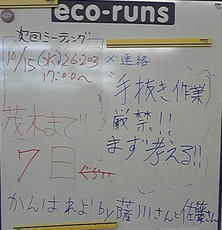 eco-runs
次回ミーティング
10/15(火)26-203
17:00~
×連絡
手抜き作業
厳禁!!
まず考える!!
茂木まで
7日
ぐらい
かんばれよ! by 薩川さんと佐藤さん